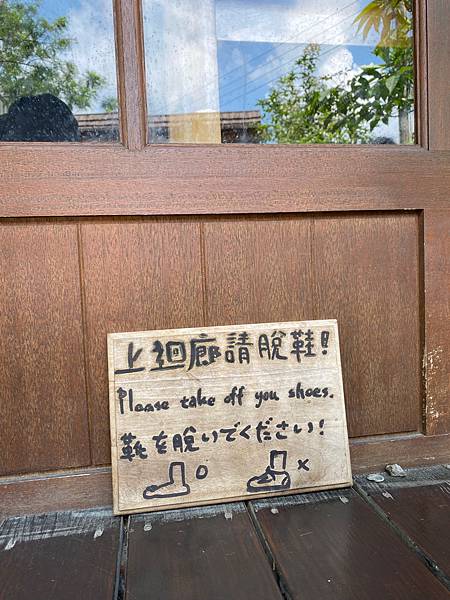 上迴廊請脫鞋!
Please take off you shoes.
靴を脱いでください!
○ ×